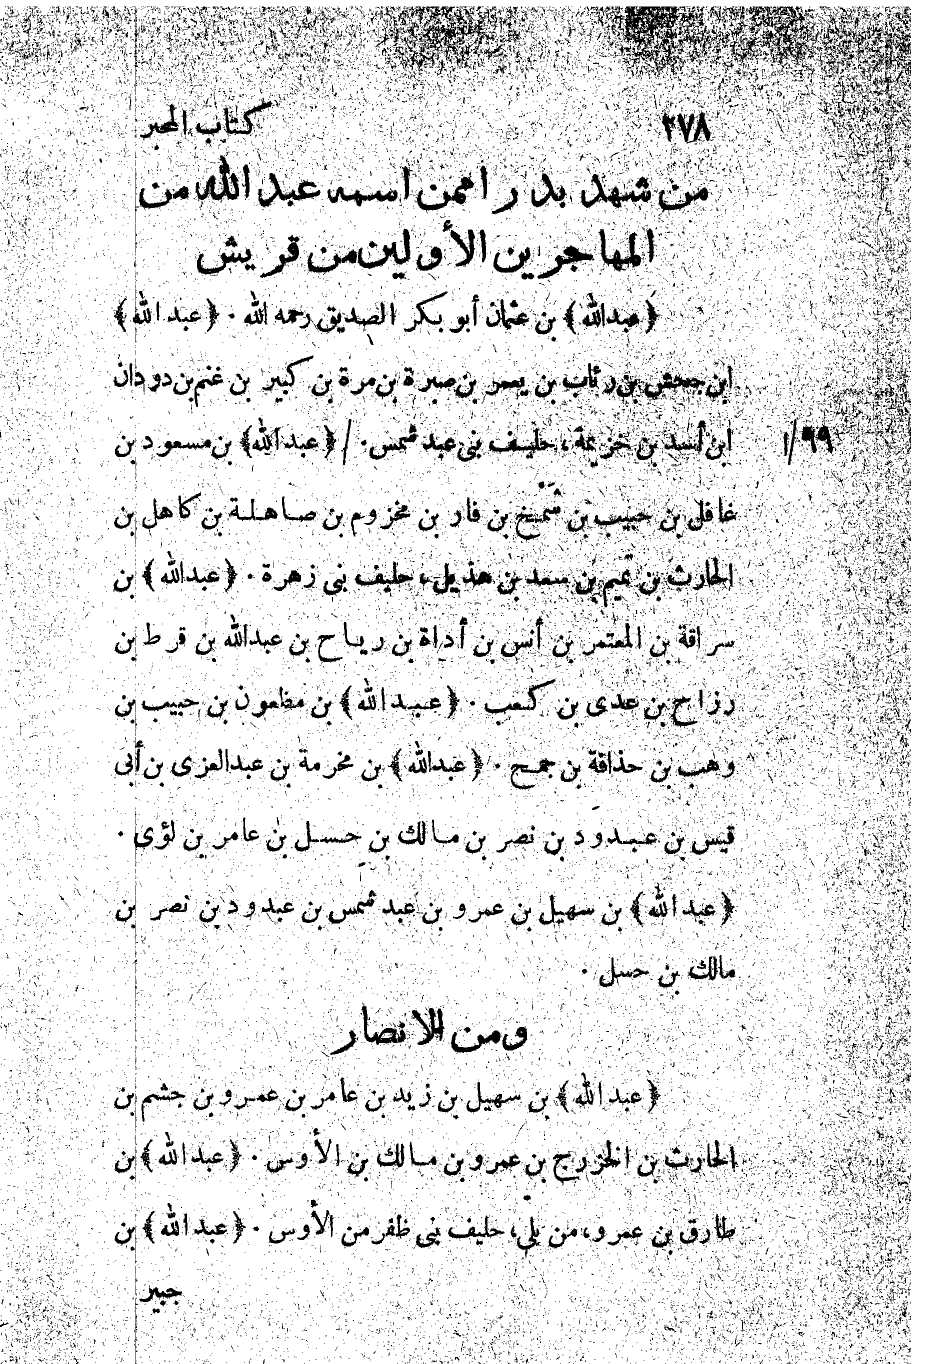 ٢٧٨ كتاب المحبر
من شهد بدرا ممن اسمه عبد الله من
المهاجرين الأولين من قريش
﴿عبد الله﴾ بن عثمان أبو بكر الصديق رحمه الله . ﴿عبد الله﴾
ابن جحش بن رئاب بن يعمر بن صبرة بن مرة بن كبير بن غنم بن دودان
ابن أسد بن خزيمة، حليف بنى عبد شمس . / ﴿عبد الله﴾ بن مسعود بن ٩٩/ا
غافل بن حبيب بن شَمْخ بن فار بن مخزوم بن صاهلة بن كاهل بن
الحارث بن تميم بن سعد بن هذيل، حليف بنى زهرة . ﴿عبد الله﴾ بن
سراقة بن المعتمر بن أنس بن أداة بن رياح بن عبد الله بن قرط بن
رزاح بن عدى بن كعب . ﴿عبد الله﴾ بن مظعون بن حبيب بن
وهب بن حذافة بن جمح . ﴿عبد الله﴾ بن مخرمة بن عبد العزى بن أبى
قيس بن عبدودّ بن نصر بن مالك بن حسل بن عامر بن لؤى .
﴿عبد الله﴾ بن سهيل بن عمرو بن عبد شمس بن عبدودّ بن نصر بن
مالك بن حسل .
ومن الانصار
﴿عبد الله﴾ بن سهيل بن زيد بن عامر بن عمرو بن جشم بن
الحارث بن الخزرج بن عمرو بن مالك بن الأوس . ﴿عبد الله﴾ بن
طارق بن عمرو، من بلي، حليف بنى ظفر من الأوس . ﴿عبد الله﴾ بن
جبير